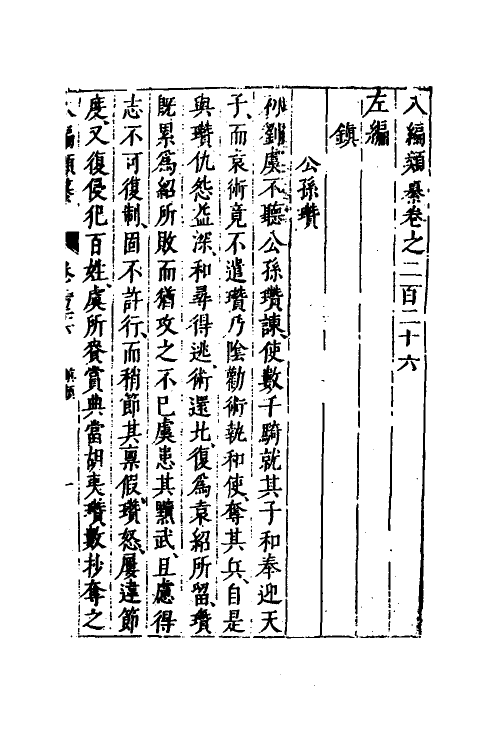 八編類纂卷之二百二十六
左編
鎮
公孫瓚
初劉虞不聽公孫瓚諫使數千騎就其子和奉迎天
子、而袁術竟不遣瓚乃陰勸術執和使奪其兵、自是
與瓚仇怨益深、和尋得逃術還北、復爲袁紹所留、瓚
既累爲紹所敗而猶攻之不已虞患其黷武、且慮得
志不可復制、固不許行、而稍節其稟假、瓚怒、屢違節
度、又復侵犯百姓、虞所賚賞典當胡夷瓚數抄奪之
八編類纂 卷 一